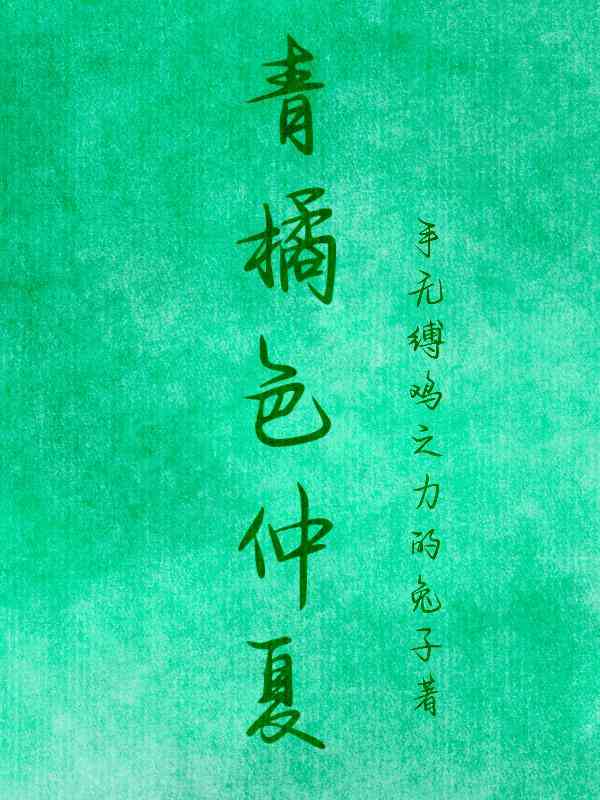 青橘色仲夏
手无缚鸡之力的兔子著